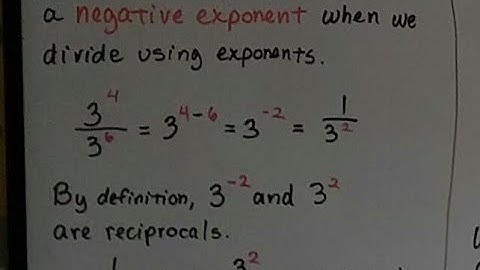 a negative exponent when we
divide using exponents.
3⁴/3⁶ = 3⁴⁻⁶ = 3⁻² = 1/3²
By definition, 3⁻² and 3²
are reciprocals.
1 3²